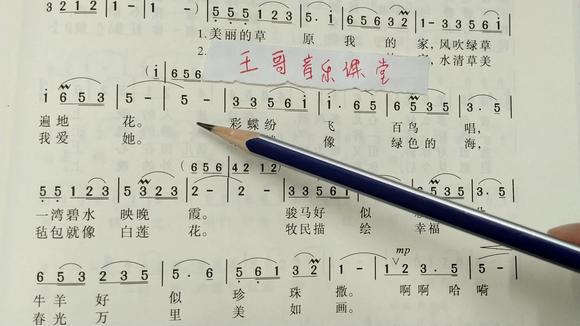 5 5 6 1 2 3 5 5 · 1 1 · 2 3 5 5 1 2 3
1.美丽的草 原 我 的 家,风吹绿草
2. ,水清草美
王哥音乐课堂
(i 656
i 6 5 3 5 - 5 - 3 3 5 6 i i · 6 5 5 3 5
遍地 花。 彩蝶纷 飞 百鸟 唱,
我爱 她。 像 绿色的 海,
(5 6 5 6 42 12)
5 5 1 2 3 5 3 2 3 2 - 2 - 3 · 5
一湾碧水 映晚 霞。 骏马好 似
毡包就像 白莲 花。 牧民描 绘 幸福
mp
6 5 3 5 1 2 3 · 6 5 6 1 3 2 1 - 1 - 1 2 3 · 5
牛羊好 似 珍 珠 撒。 啊啊哈嗬
春光万 里 美 如 画。